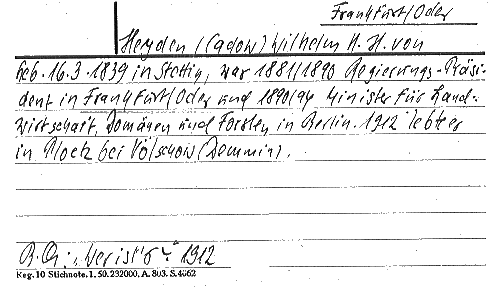 Frankfurt/Oder
Heyden (Cadow) Wilhelm K. H. von
Geb. 16.3.1839 in Stettin, war 1881/1890 Regierungs-Präsi-
dent in Frankfurt/Oder und 1890/94 Minister für Land-
wirtschaft, Domänen und Forsten in Berlin. 1912 lebte er
in Ploetz bei Völschow (Demmin).
B.Qu: „Wer ist's“ 1912
Keg. 10 Stichnote. 1. 50. 232000. A. 803. S. 4662